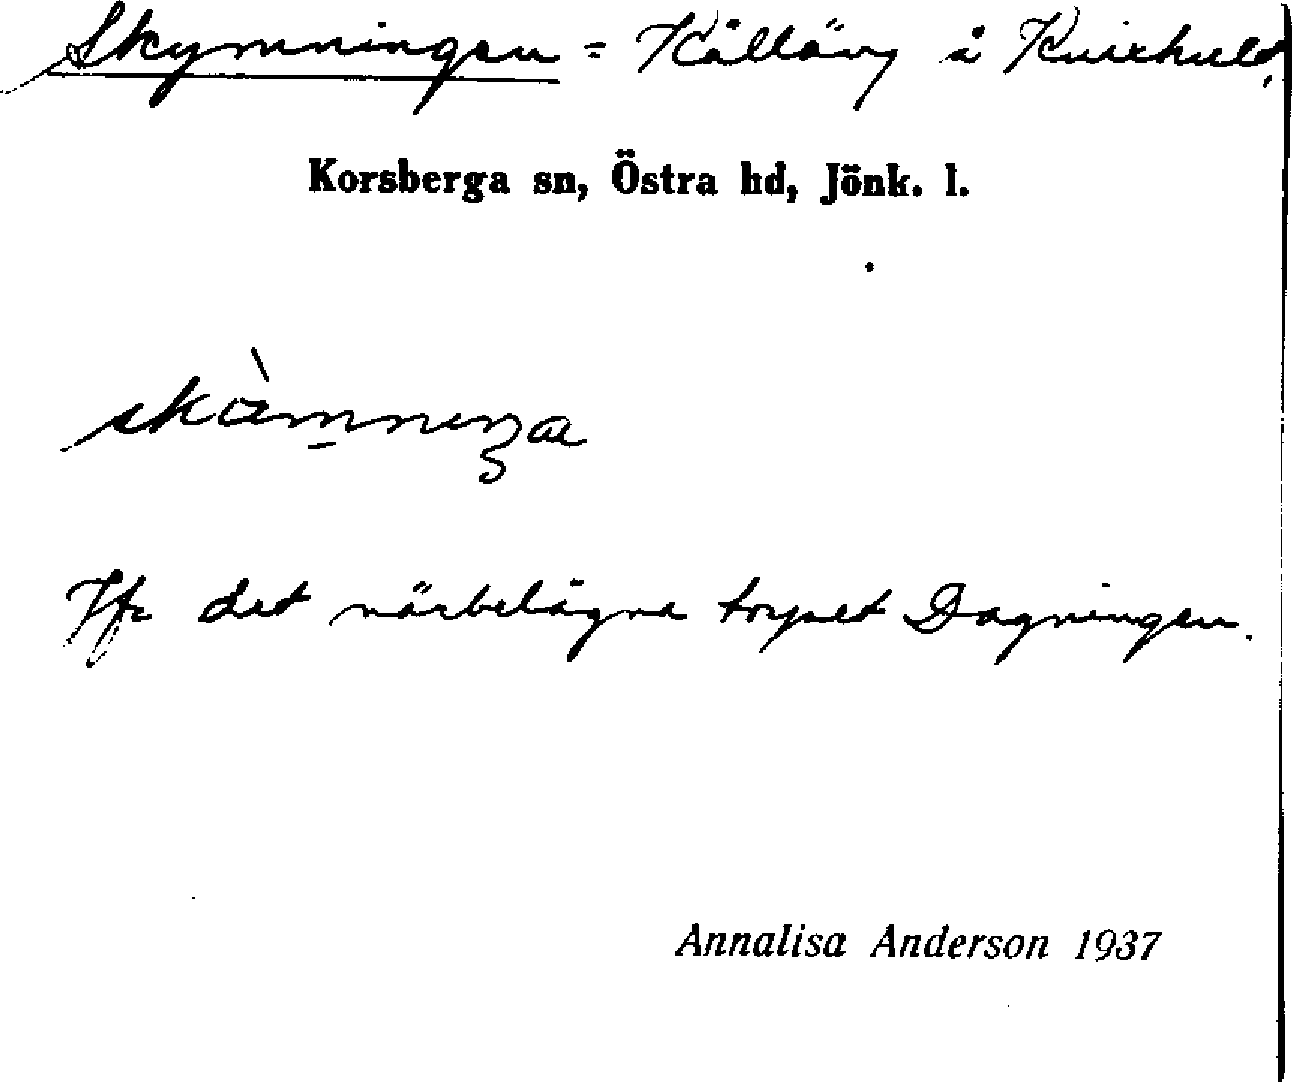 Skymningen = Källäng i Kvixhult.
Korsberga sn, Östra hd, Jönk. l.
Jfr det närbelägna torpet Dagningen.
Annalisa Anderson 1937